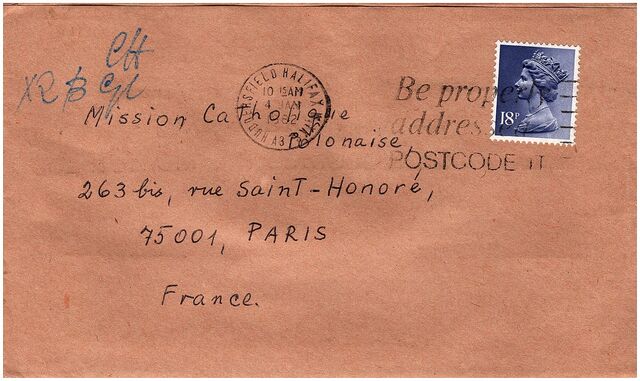 CH
XRB Gl
HUDDERSFIELD HALIFAX
10 15AM
4 JAN
1982
A3
Be proper
address
POSTCODE IT
18P
Mission Catholique
Polonaise,
263 bis, rue Saint-Honoré,
75001, PARIS
France.